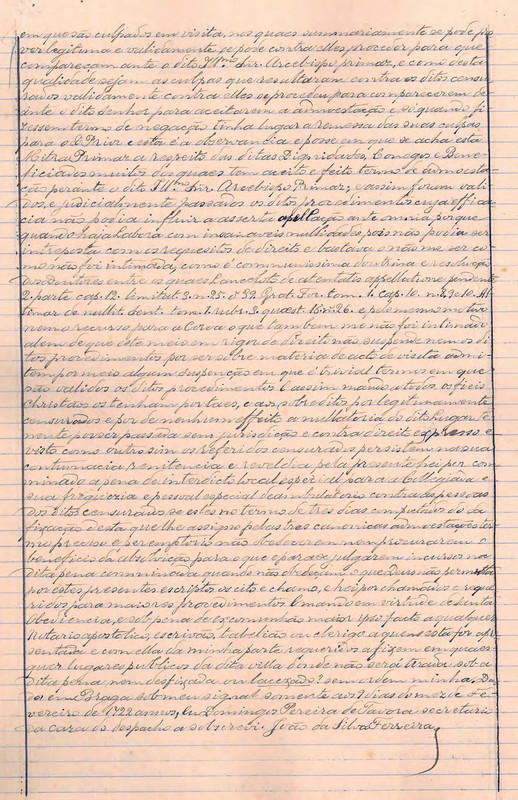 em que são culpados em visita, nos quaes summariamente se pode pro
ver legitima e validamente se pode contra elles proceder para que
compareçam ante o dito Illmo Snr. Arcebispo primaz, e como desta
qualidade sejam as culpas que resultaram contra os ditos censu
rados validamente contra elles se procedeu para comparecerem pe
ante o dito senhor para aceitarem a admoestação e só quando fi
zessem termo de negação tinha lugar a remessa das suas culpas
para o D. Prior e esta é a observancia e posse em que se acha esta
Mitra Primaz a respeito das ditas Dignidades, Conegos e Bene
ficiados muitos dos quaes tem aceito e feito termo de admoesta
ção perante o dito Illmo Snr. Arcebispo Primaz; e assim foram vali
dos, e judicialmente passados os ditos procedimentos cuja effica
cia não podia influir a asserta apellação ante omnia, porque
quando haja labora com insanaveis nullidades, pois não podia ser
interposta com os requesitos de direito e bastava o não me ser co
mo não foi intimada, como é communissima doutrina e resolução
dos doutores entre os quaes Lancelote de atentatis appellatione pendente
2. parte cap. 12. Limitat. 3. n. 25. e 52. Grat. For. tom. 1. cap. 10. n. 8. 9 e 10. Al
timar de nullit. sent. tom. 1. rubr. 5. quæst. 15. n. 26. e pelo mesmo moti
vo nem o recurso para a Coroa o que tambem me não foi intimado
alem de que este mais em rigor de direito não suspende nem os di
tos procedimentos por ser sobre materia de acto de visita admi
tem por meio algum suspenção em que é trivial termos em que
são validos os ditos procedimentos e assim mando a todos os fieis
Christãos os tenham por taes, e aos sobreditos por legitimamente
censurados e por de nenhum effeito a nullatoria do dito Lugar Te
nente por ser passada sem jurisdição e contra direito expresso e
visto como outro sim os referidos censurados persistem na sua
contumacia remitencia e reveldia pela presente hei por com
minado a pena de interdicto local especial para a Collegiada e
sua freguezia e pessoal especial deambulatorio contra as pessoas
dos ditos censurados se estes no termo de tres dias computados do da
fixação desta que lhe assigno pelas tres canonicas admoestações ter
mo preciso e peremptorio não obedecerem nem procurarem o
beneficio da absolvição para o que e para se julgarem incursos na
dita pena comminada quando não obedeçam o que Deus não permitta
por estes presentes escriptos os cito e chamo, e hei por chamados e reque
ridos para maiores procedimentos. E mando em virtude de santa
obediencia, e sob pena de excomunhão maior ipso facto a qualquer
Notario apostolico, escrivão, tabelião ou clerigo a quem esta for apre
sentada e com ella da minha parte requeridos afixem em quaes
quer lugares publicos da dita villa donde não será tirada sob a
dita pena, nem desfixada ou lacerada? sem ordem minha. Da
da em Braga sob meu signal somente aos? dias do mez de Fe
vereiro de 1722 annos, Eu Domingos Pereira de Tavora secretario
da casa do despacho a sobscrevi. João da Silva Ferreira